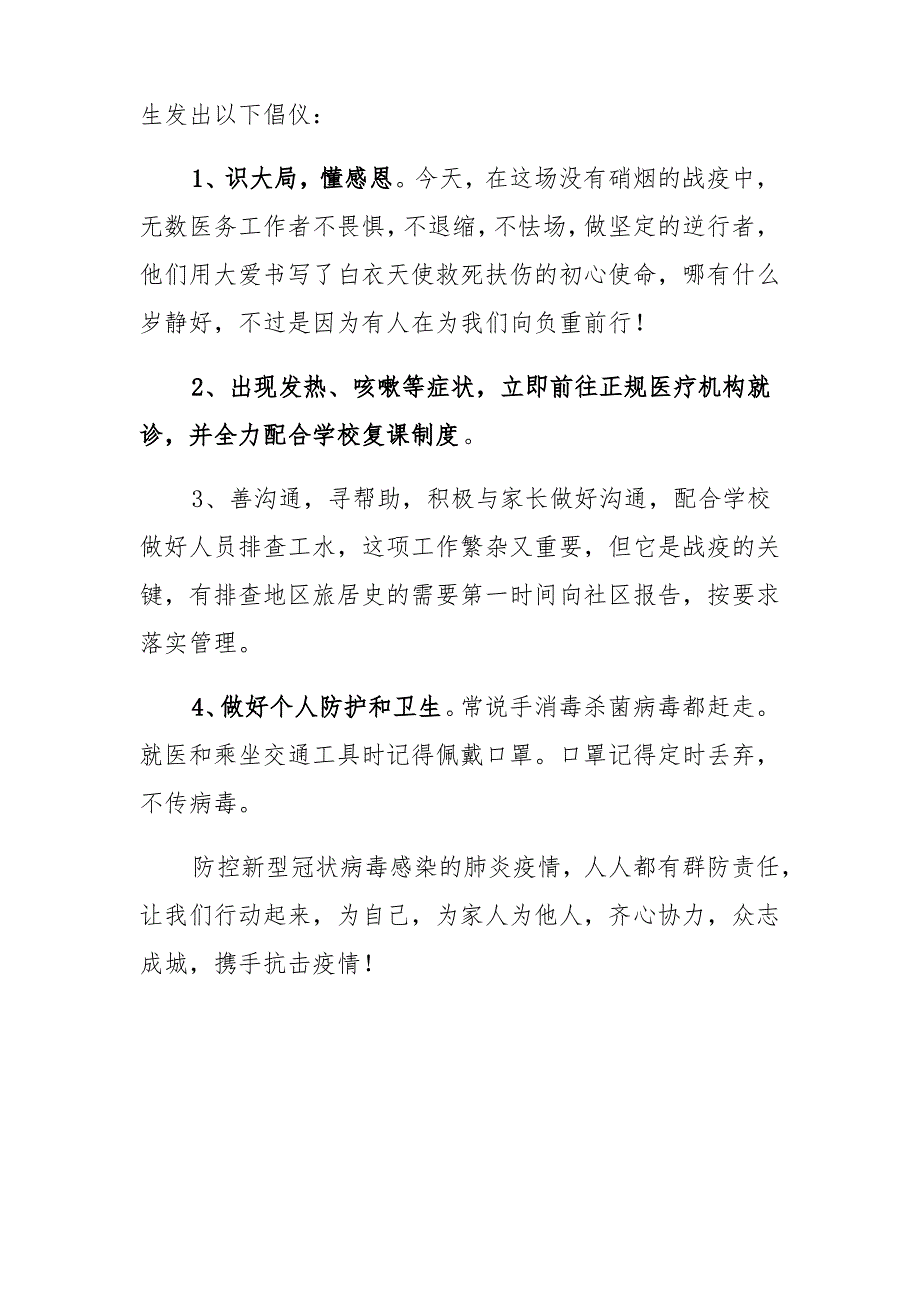 生发出以下倡仪：
1、识大局，懂感恩。今天，在这场没有硝烟的战疫中，
无数医务工作者不畏惧，不退缩，不怯场，做坚定的逆行者，
他们用大爱书写了白衣天使救死扶伤的初心使命，哪有什么
岁静好，不过是因为有人在为我们向负重前行！
2、出现发热、咳嗽等症状，立即前往正规医疗机构就
诊，并全力配合学校复课制度。
3、善沟通，寻帮助，积极与家长做好沟通，配合学校
做好人员排查工水，这项工作繁杂又重要，但它是战疫的关
键，有排查地区旅居史的需要第一时间向社区报告，按要求
落实管理。
4、做好个人防护和卫生。常说手消毒杀菌病毒都赶走。
就医和乘坐交通工具时记得佩戴口罩。口罩记得定时丢弃，
不传病毒。
防控新型冠状病毒感染的肺炎疫情，人人都有群防责任，
让我们行动起来，为自己，为家人为他人，齐心协力，众志
成城，携手抗击疫情！